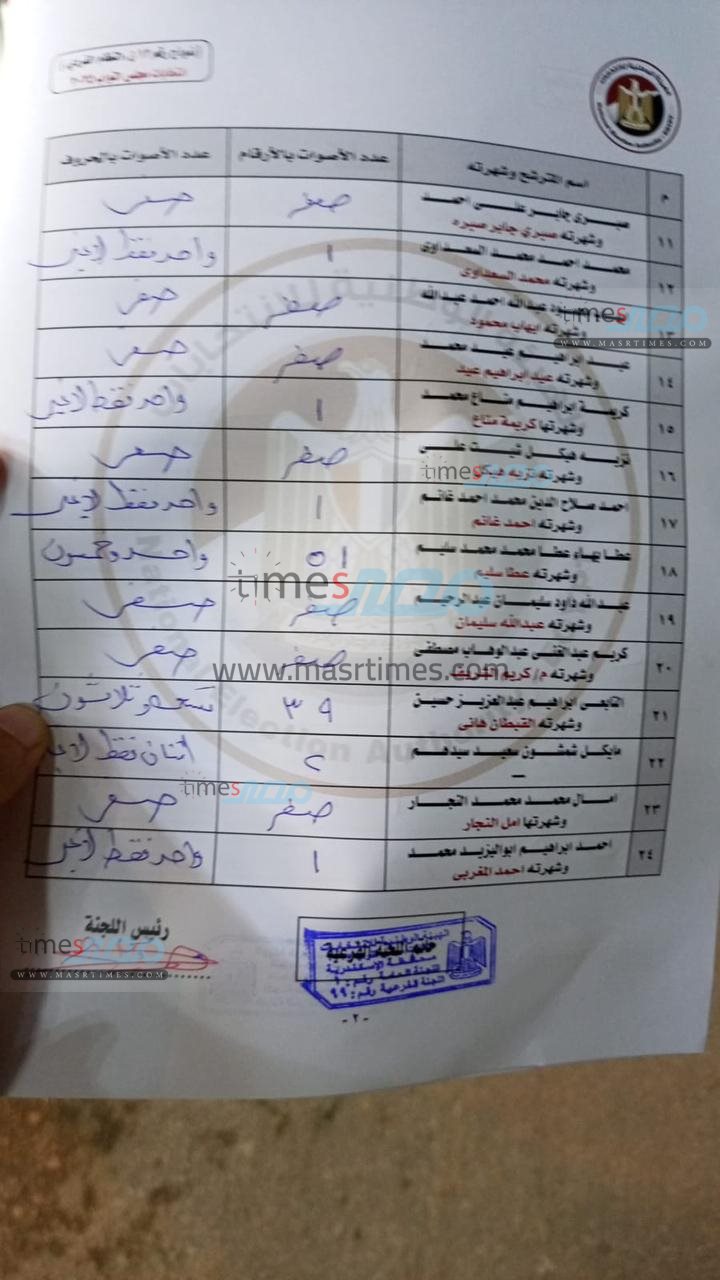 انتخابات مجلس النواب ٢٠٢٥
م
اسم المترشح وشهرته
عدد الأصوات بالأرقام
عدد الأصوات بالحروف
١١
صبرى جابر على احمد
وشهرته صبري جابر صيره
صفر
صفر
١٢
محمد احمد محمد السعداوى
وشهرته محمد السعداوى
١
واحد فقط لاغير
عبدالله احمد عبدالله
وشهرته ايهاب محمود
صفر
صفر
١٤
عيد ابراهيم عيد محمد
وشهرته عيد ابراهيم عيد
صفر
صفر
١٥
كريمة ابراهيم مناع محمد
وشهرتها كريمة مناع
١
واحد فقط لاغير
١٦
نزيه هيكل ثبت على
وشهرته نزيه هيكل
صفر
صفر
١٧
احمد صلاح الدين محمد احمد غانم
وشهرته احمد غانم
١
واحد فقط لاغير
١٨
عطا بهاء عطا محمد محمد سليم
وشهرته عطا سليم
٥١
واحد وخمسون
١٩
عبدالله داود سليمان عبدالرحيم
وشهرته عبدالله سليمان
صفر
صفر
٢٠
كريم عبدالغنى عبدالوهاب مصطفى
وشهرته م/ كريم الشريف
صفر
صفر
٢١
التابعى ابراهيم عبدالعزيز حسين
وشهرته القبطان هانى
٣٩
تسعة وثلاثون
٢٢
مايكل شمشون سعيد سيدهم
—
٢
اثنان فقط لاغير
٢٣
امال محمد محمد النجار
وشهرتها امل النجار
صفر
صفر
٢٤
احمد ابراهيم ابواليزيد محمد
وشهرته احمد المغربى
١
واحد فقط لاغير
رئيس اللجنة
خاتم اللجنة الفرعية
محافظة الإسكندرية
اللجنة الفرعية رقم: ٩٩
-٢-
National Election Authority
times مصر
WWW.MASRTIMES.COM
times مصر
times مصر
www.masrtimes.com
times مصر
times مصر
WWW.MASRTIMES.COM